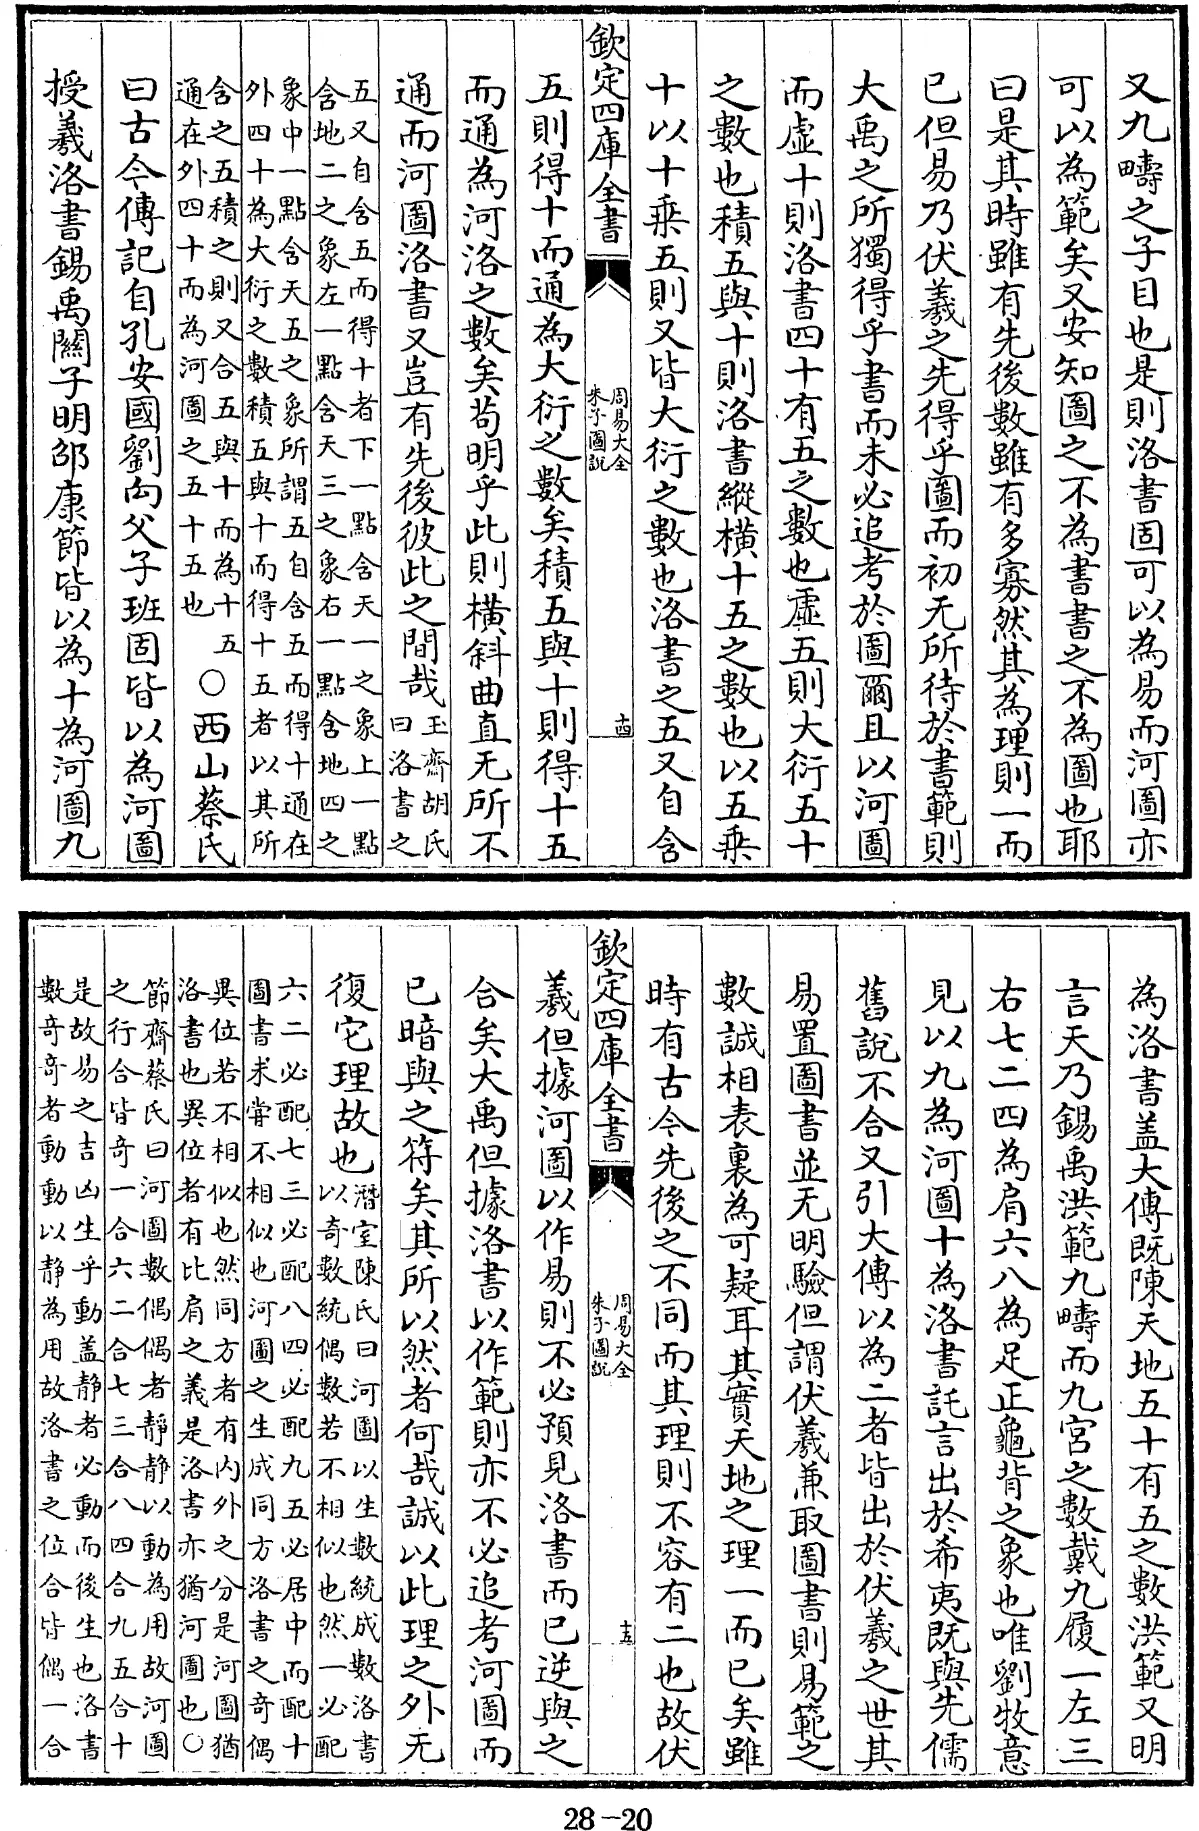 又九疇之子目也是則洛書固可以為易而河圖亦
可以為範矣又安知圖之不為書書之不為圖也耶
曰是其時雖有先後數雖有多寡然其為理則一而
已但易乃伏羲之先得乎圖而初无所待於書範則
大禹之所獨得乎書而未必追考於圖爾且以河圖
而虛十則洛書四十有五之數也虛五則大衍五十
之數也積五與十則洛書縱橫十五之數也以五乘
十以十乘五則又皆大衍之數也洛書之五又自含
欽定四庫全書
周易大全
朱子圖說
十四
五則得十而通為大衍之數矣積五與十則得十五
而通為河洛之數矣苟明乎此則橫斜曲直无所不
通而河圖洛書又豈有先後彼此之間哉
玉齋胡氏
曰洛書之
五又自含五而得十者下一點含天一之象上一點
含地二之象左一點含天三之象右一點含地四之
象中一點含天五之象所謂五自含五而得十通在
外四十為大衍之數積五與十而得十五者以其所
含之五積之則又合五與十而為十五
通在外四十而為河圖之五十五也
○西山蔡氏
曰古今傳記自孔安國劉向父子班固皆以為河圖
授羲洛書錫禹關子明邵康節皆以為十為河圖九
為洛書盖大傳既陳天地五十有五之數洪範又明
言天乃錫禹洪範九疇而九宮之數戴九履一左三
右七二四為肩六八為足正龜背之象也唯劉牧意
見以九為河圖十為洛書託言出於希夷既與先儒
舊說不合又引大傳以為二者皆出於伏羲之世其
易置圖書並无明驗但謂伏羲兼取圖書則易範之
數誠相表裏為可疑耳其實天地之理一而已矣雖
時有古今先後之不同而其理則不容有二也故伏
欽定四庫全書
周易大全
朱子圖說
十五
羲但據河圖以作易則不必預見洛書而已逆與之
合矣大禹但據洛書以作範則亦不必追考河圖而
已暗與之符矣其所以然者何哉誠以此理之外无
復它理故也
潛室陳氏曰河圖以生數統成數洛書
以奇數統偶數若不相似也然一必配
六二必配七三必配八四必配九五必居中而配十
圖書未嘗不相似也河圖之生成同方洛書之奇偶
異位若不相似也然同方者有内外之分是河圖猶
洛書也異位者有比肩之義是洛書亦猶河圖也○
節齋蔡氏曰河圖數偶偶者靜靜以動為用故河圖
之行合皆奇一合六二合七三合八四合九五合十
是故易之吉凶生乎動盖靜者必動而後生也洛書
數奇奇者動動以靜為用故洛書之位合皆偶一合
28-20